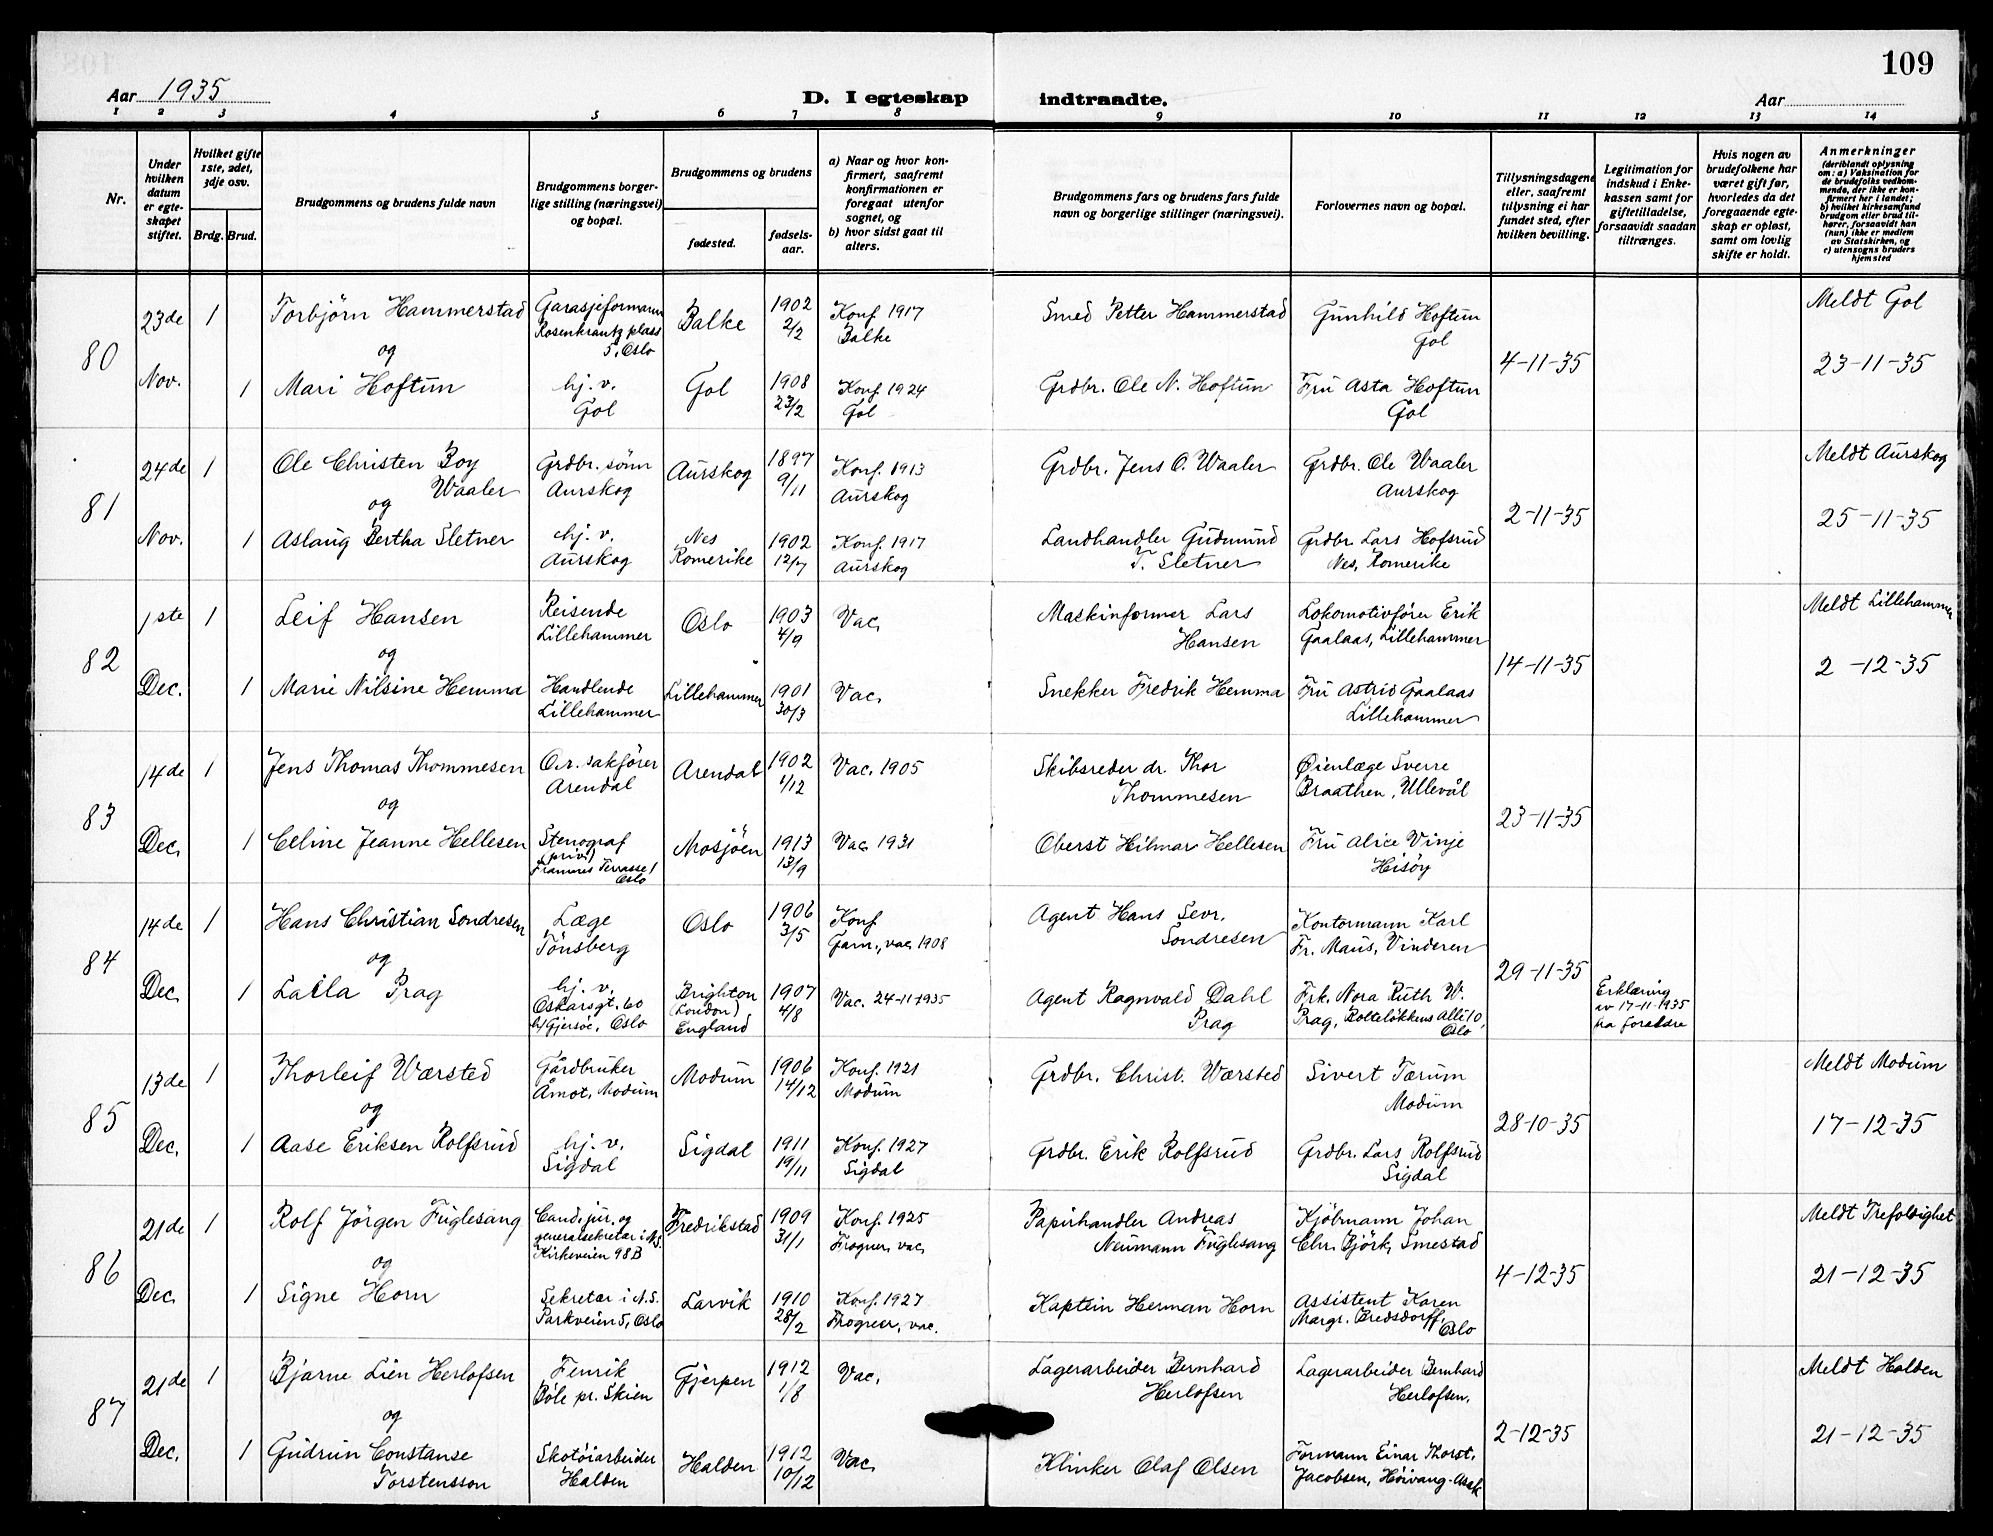 109
Aar 1935
D. I egteskap indtraadte.
Aar
1 2 3 4 5 6 7 8 9 10 11 12 13 14
Nr.
Under hvilken datum er egte-skapet stiftet.
Hvilket gifte 1ste, 2det, 3dje osv.
Brdg. Brud.
Brudgommens og brudens fulde navn
Brudgommens borger-lige stilling (næringsvei) og bopæl.
Brudgommens og brudens
fødested.
fødsels-aar.
a) Naar og hvor kon-firmert, saafremt konfirmationen er foregaat utenfor sognet, og
b) hvor sidst gaat til alters.
Brudgommens fars og brudens fars fulde navn og borgerlige stillinger (næringsvei).
Forlovernes navn og bopæl.
Tillysningsdagene eller, saafremt tillysning ei har fundet sted, efter hvilken bevilling.
Legitimation for indskud i Enke-kassen samt for giftetilladelse, forsaavidt saadan tiltrænges.
Hvis nogen av brudefolkene har været gift før, hvorledes da det foregaaende egte-skap er opløst, samt om lovlig skifte er holdt.
Anmerkninger
(deriblandt oplysning om: a) Vaksination for de brudefolks vedkom-mende, der ikke er kon-firmert her i landet; b) hvilket kirkesamfund brudgom eller brud til-hører, forsaavidt han (hun) ikke er medlem av Statskirken, og c) utensogns bruders hjemsted
80
23de Nov.
1
Torbjörn Hammerstad
Garasjeformann
Rosenkrantz plass
5, Oslo
Balke
1902
2/2
Konf 1917
Balke
Smed Petter Hammerstad
Gunhild Hoftun
Gol
4-11-35
Meldt Gol
23-11-35
og
1
Mari Hoftun
hj. v.
Gol
Gol
1908
23/2
Konf 1924
Gol
Grdbr. Ole N. Hoftun
Fru Asta Hoftun
Gol
81
24de Nov.
1
Ole Christen Boy
Waaler
Grdbr. sönn
Aurskog
Aurskog
1897
9/11
Konf. 1913
Aurskog
Grdbr. Jens O. Waaler
Grdbr. Ole Waaler
Aurskog
2-11-35
Meldt Aurskog
25-11-35
og
1
Aslaug Bertha Sletner
hj. v.
Aurskog
Nes
Romerike
1902
12/7
Konf. 1917
Aurskog
Landhandler Gudmund
T. Sletner
Grdbr. Lars Hofsrud
Nes, Romerike
82
1ste Dec.
1
Leif Hansen
Reisende
Lillehammer
Oslo
1903
4/9
Vac.
Maskinformer Lars
Hansen
Lokomotivförer Erik
Gaalaas, Lillehammer
14-11-35
Meldt Lillehammer
2-12-35
og
1
Marie Nilsine Hemma
Handlende
Lillehammer
Lillehammer
1901
30/3
Vac.
Snekker Fredrik Hemma
Fru Astrid Gaalaas
Lillehammer
83
14de Dec.
1
Jens Thomas Thommesen
O.r. sakförer
Arendal
Arendal
1902
1/12
Vac. 1905
Skibsreder dr. Thor
Thommesen
Øienlæge Sverre
Braathen, Ullevål
23-11-35
og
1
Celine Jeanne Hellesen
Stenograf
(priv.)
Framnes Terrasse 1
Oslo
Mosjöen
1913
13/9
Vac. 1931
Oberst Hilmar Hellesen
Fru Alice Vinje
Hisöy
84
14de Dec.
1
Hans Christian Sondresen
Læge
Tönsberg
Oslo
1906
3/5
Konf
Garn., vac. 1908
Agent Hans Sevr.
Sondresen
Kontormann Karl
Fr. Maus, Vinderen
29-11-35
og
1
Laila Prag
hj. v.
Oskarsgt. 60
b/ Gjersöe, Oslo
Brighton
(London)
England
1907
4/8
Vac. 24-11-1935
Agent Ragnvald Dahl
Prag
Frk. Nora Ruth W.
Prag, Bolteløkkens Allé 10,
Oslo
Erklæring
av 17-11-1935
fra foreldre
85
13de Dec.
1
Thorleif Wærsted
Gårdbruker
Åmot, Modum
Modum
1906
14/12
Konf. 1921
Modum
Grdbr. Christ. Wærsted
Sivert Tærum
Modum
28-10-35
Meldt Modum
17-12-35
og
1
Aase Eriksen Rolfsrud
hj. v.
Sigdal
Sigdal
1911
19/11
Konf. 1927
Sigdal
Grdbr. Erik Rolfsrud
Grdbr. Lars Rolfsrud
Sigdal
86
21de Dec.
1
Rolf Jörgen Fuglesang
Cand. jur. og
generalsekretær i N.S.
Kirkeveien 98B
Fredrikstad
1909
31/1
Konf. 1925
Frogner, vac.
Papirhandler Andreas
Neumann Fuglesang
Kjöbmann Johan
Chr. Björk, Smestad
4-12-35
Meldt Trefoldighet
21-12-35
og
1
Signe Horn
Sekretær i N.S.
Parkveien 5, Oslo
Larvik
1910
28/2
Konf. 1927
Frogner, vac.
Kaptein Herman Horn
Assistent Karen
Margr. Bredsdorff,
Oslo
87
21de Dec.
1
Bjarne Lien Herlofsen
Fenrik
Böle pr. Skien
Gjerpen
1912
1/8
Vac.
Lagerarbeider Bernhard
Herlofsen
Lagerarbeider Bernhard
Herlofsen.
2-12-35
Meldt Halden
21-12-35
og
1
Gudrun Constanse
Torstensson
Skotöiarbeider
Halden
Halden
1912
10/12
Vac.
Klinker Olaf Olsen
Formann Einar Thorst.
Jacobsen, Höivang-Asak